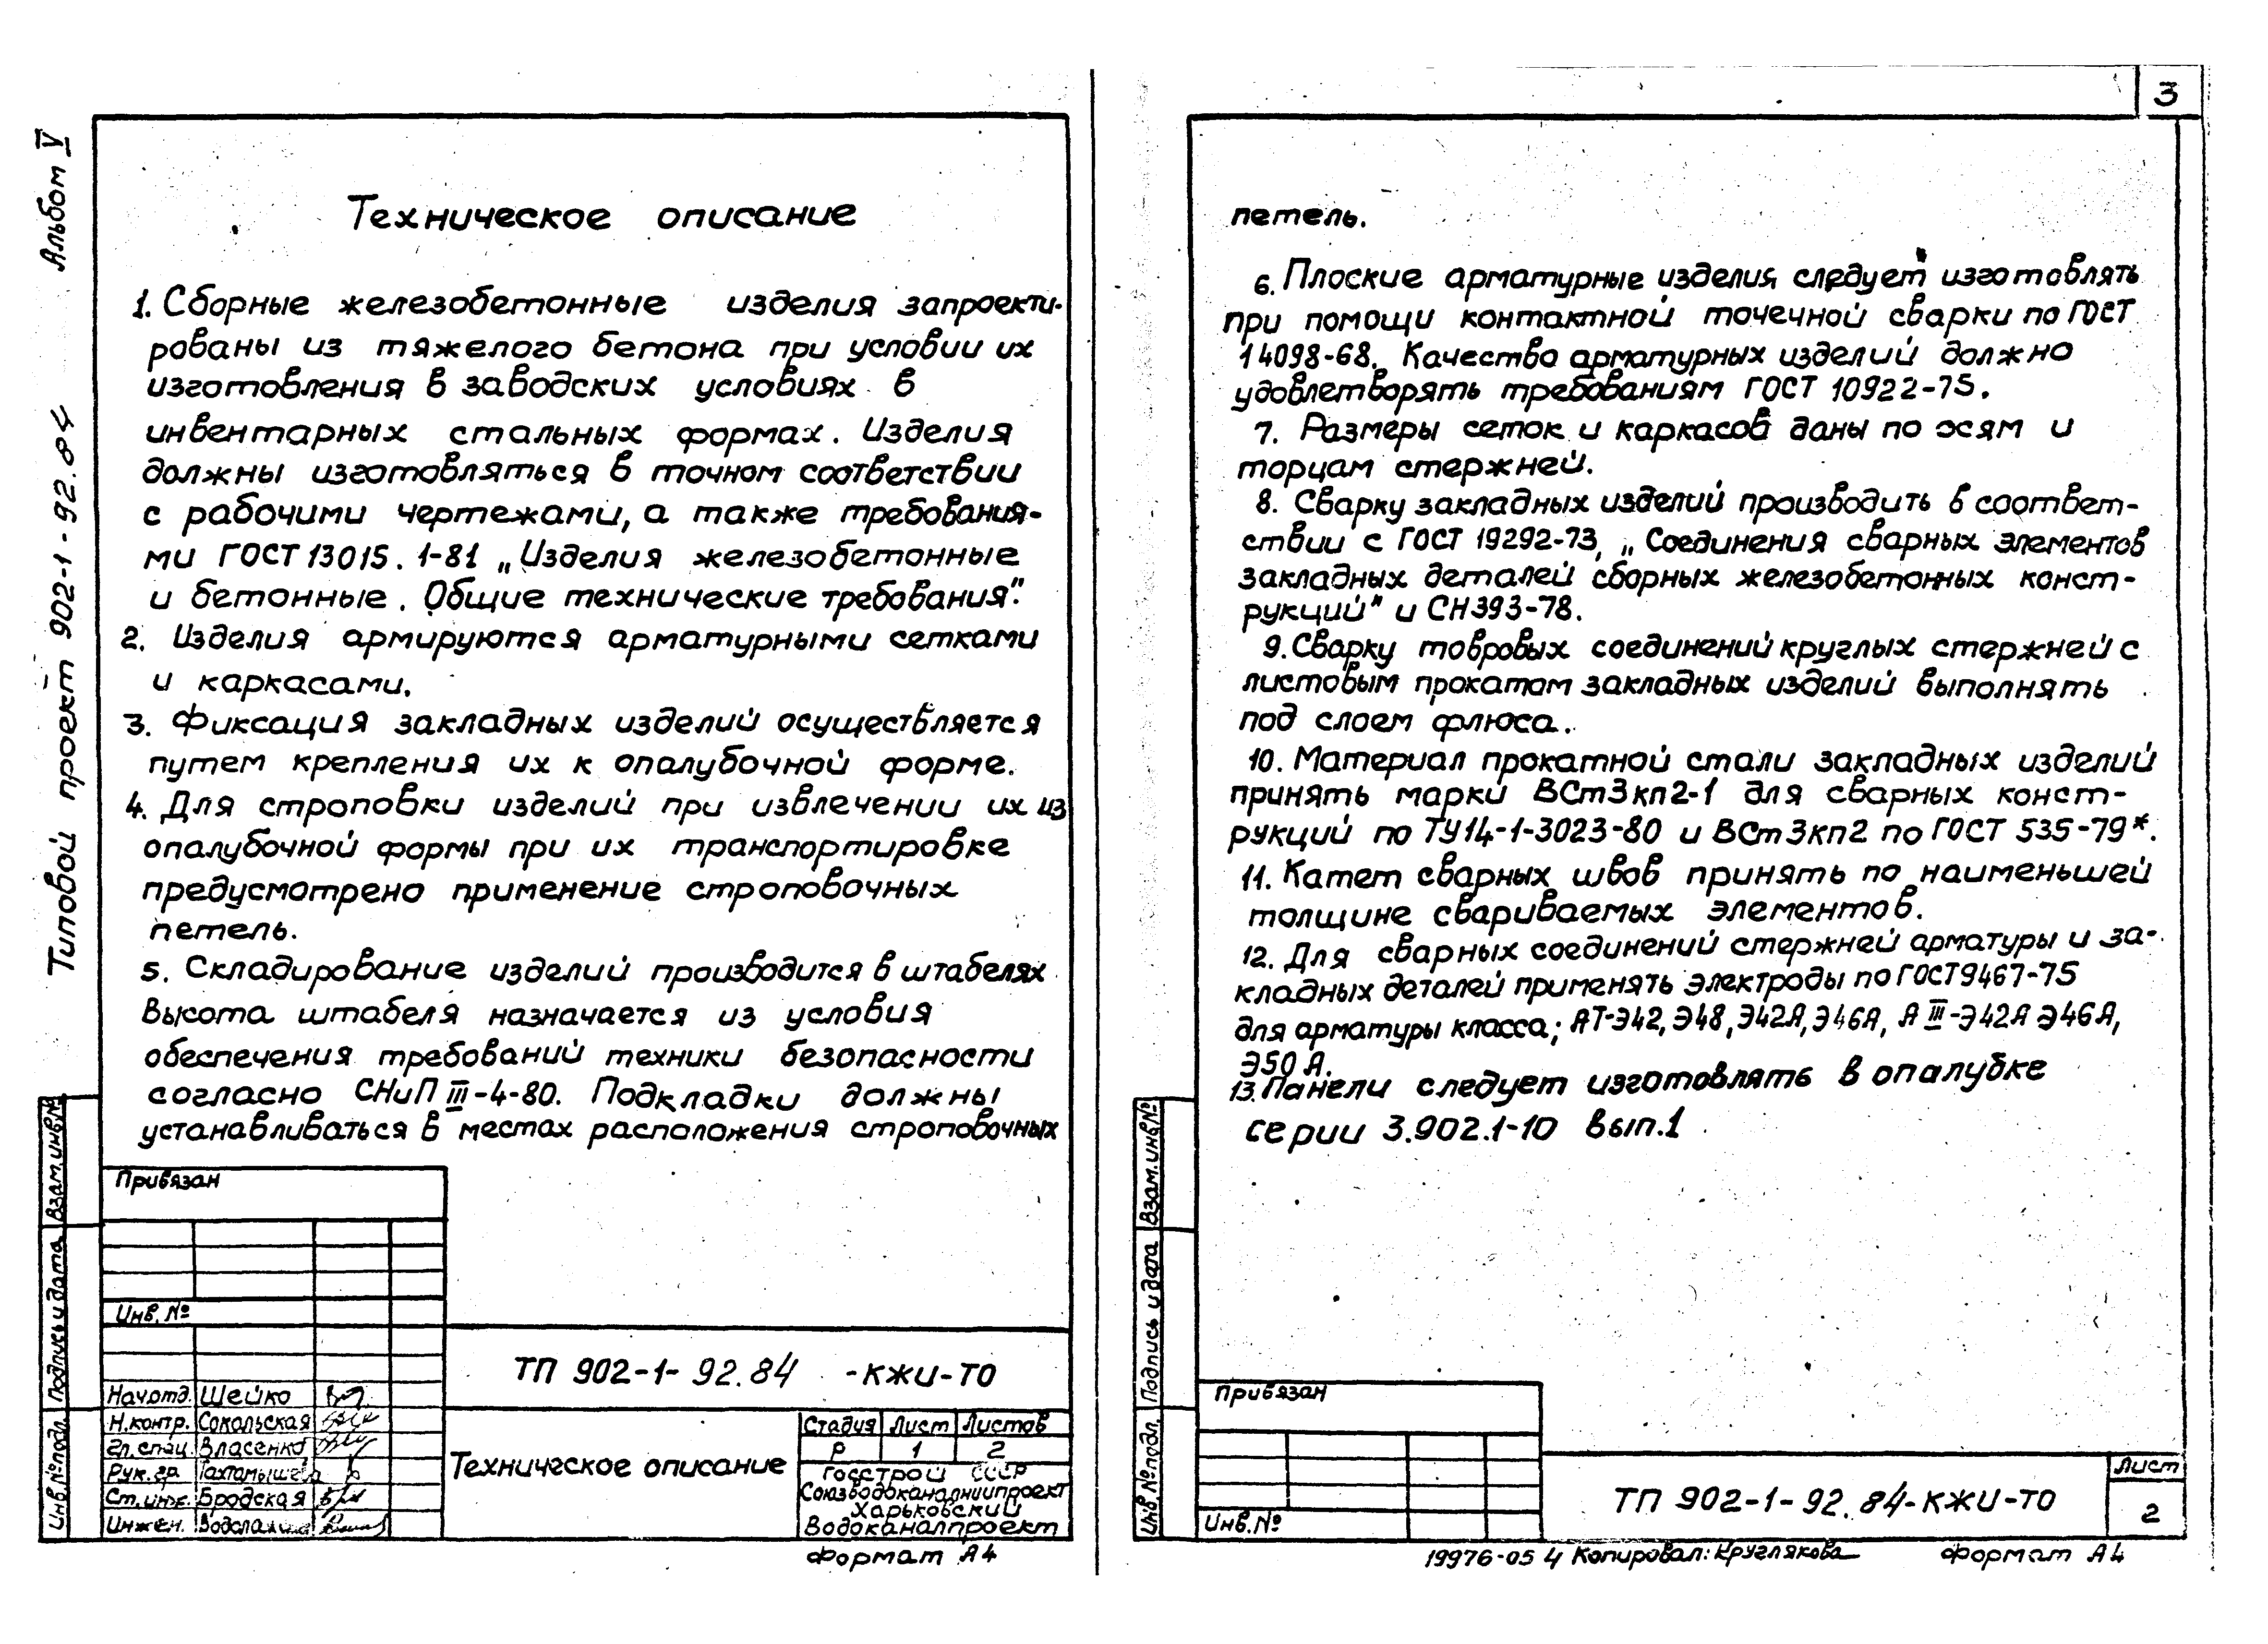 Альбом V
Типовой проект 902-1-92.84
Техническое описание
1. Сборные железобетонные изделия запроекти-
рованы из тяжелого бетона при условии их
изготовления в заводских условиях в
инвентарных стальных формах. Изделия
должны изготовляться в точном соответствии
с рабочими чертежами, а также требования-
ми ГОСТ 13015.1-81 „Изделия железобетонные
и бетонные. Общие технические требования".
2. Изделия армируются арматурными сетками
и каркасами.
3. Фиксация закладных изделий осуществляется
путем крепления их к опалубочной форме.
4. Для строповки изделий при извлечении их из
опалубочной формы при их транспортировке
предусмотрено применение строповочных
петель.
5. Складирование изделий производится в штабелях
Высота штабеля назначается из условия
обеспечения требований техники безопасности
согласно СНиП III-4-80. Подкладки должны
устанавливаться в местах расположения строповочных
Привязан
Инв. №
Взам.инв.№
Подпись и дата
Инв.№подл.
Нач.отд. Шейко
Н.контр. Сокольская
Гл.спец. Власенко
Рук.гр. Тахтамышева
Ст.инж. Бродская
Инжен.
ТП 902-1-92.84 -КЖИ-ТО
Техническое описание
Стадия Лист Листов
Р 1 2
Госстрой СССР
Союзводоканалниипроект
Харьковский
Водоканалпроект
Формат А4
3
петель.
6. Плоские арматурные изделия следует изготовлять
при помощи контактной точечной сварки по ГОСТ
14098-68. Качество арматурных изделий должно
удовлетворять требованиям ГОСТ 10922-75.
7. Размеры сеток и каркасов даны по осям и
торцам стержней.
8. Сварку закладных изделий производить в соответ-
ствии с ГОСТ 19292-73, „Соединения сварных элементов
закладных деталей сборных железобетонных конст-
рукций" и СН393-78.
9. Сварку товровых соединений круглых стержней с
листовым прокатом закладных изделий выполнять
под слоем флюса.
10. Материал прокатной стали закладных изделий
принять марки ВСт3кп2-1 для сварных конст-
рукций по ТУ14-1-3023-80 и ВСт3кп2 по ГОСТ 535-79*.
11. Катет сварных швов принять по наименьшей
толщине свариваемых элементов.
12. Для сварных соединений стержней арматуры и за-
кладных деталей применять электроды по ГОСТ9467-75
для арматуры класса; АТ-Э42, Э48, Э42А, Э46А, А III-Э42А Э46А,
Э50А.
13. Панели следует изготовлять в опалубке
серии 3.902.1-10 вып.1
Взам.инв.№
Подпись и дата
Инв.№подл.
Привязан
Инв.№
ТП 902-1-92.84-КЖИ-ТО
Лист
2
19976-05 4 Копировал: Круглякова Формат А4